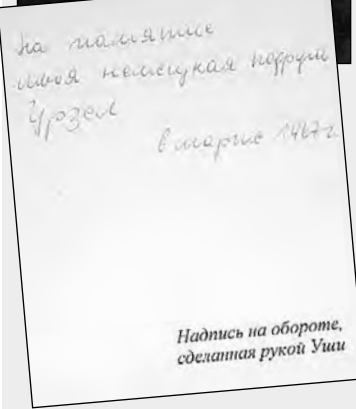 на памятие
твоя немецкая подруга
Урзел
в марте 1967 г
Надпись на обороте,
сделанная рукой Уши